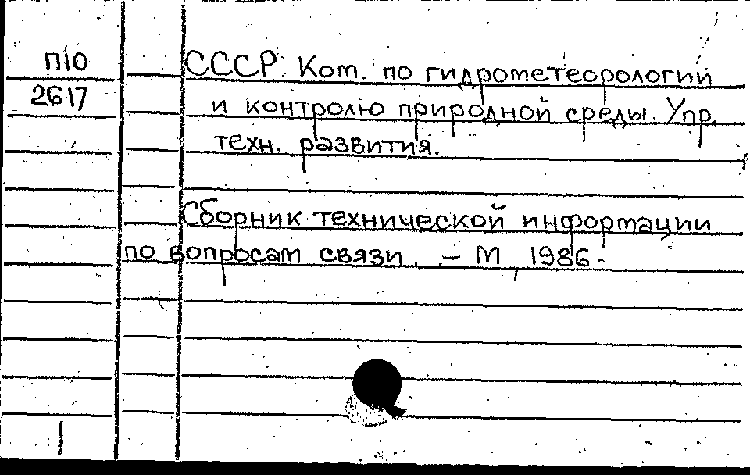 П10
2617
СССР. Ком. по гидрометеорологии
и контролю природной среды. Упр.
техн. развития.
Сборник технической информации
по вопросам связи. – М, 1986-